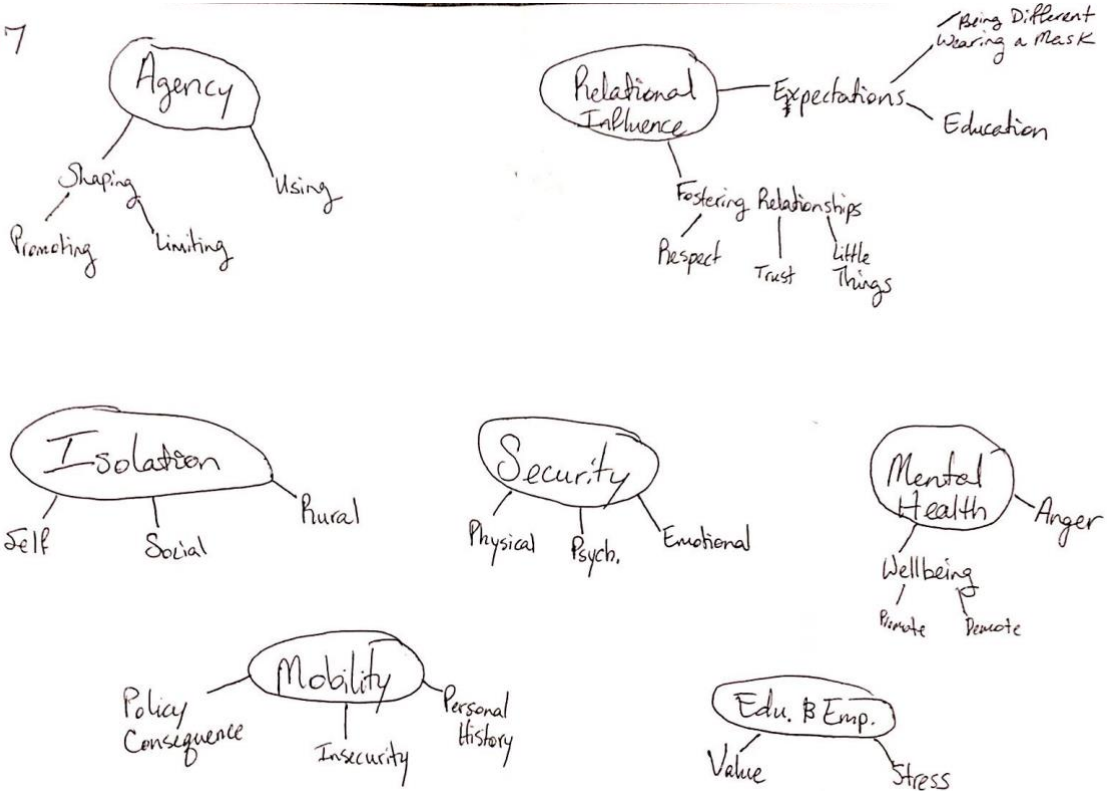 7
Agency
Shaping
Using
Promoting
Limiting
Relational
Influence
Expectations
Being Different
Wearing a Mask
Education
Fostering Relationships
Respect
Trust
Little
Things
Isolation
Self
Social
Rural
Security
Physical
Psych.
Emotional
Mental
Health
Anger
Wellbeing
Promote
Demote
Mobility
Policy
Consequence
Insecurity
Personal
History
Edu. & Emp.
Value
Stress